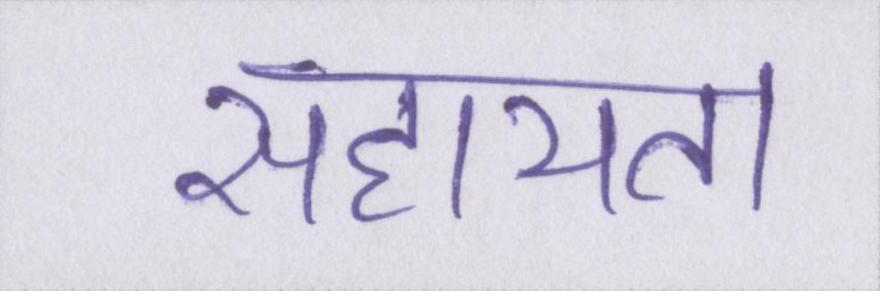 सहायता